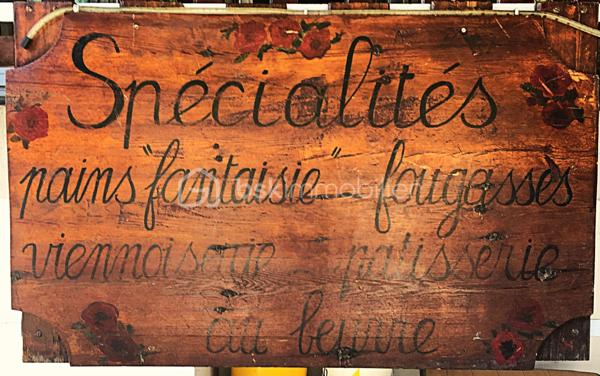 Spécialités
pains "fantaisie" - fougasses
viennoiserie - patisserie
au beurre